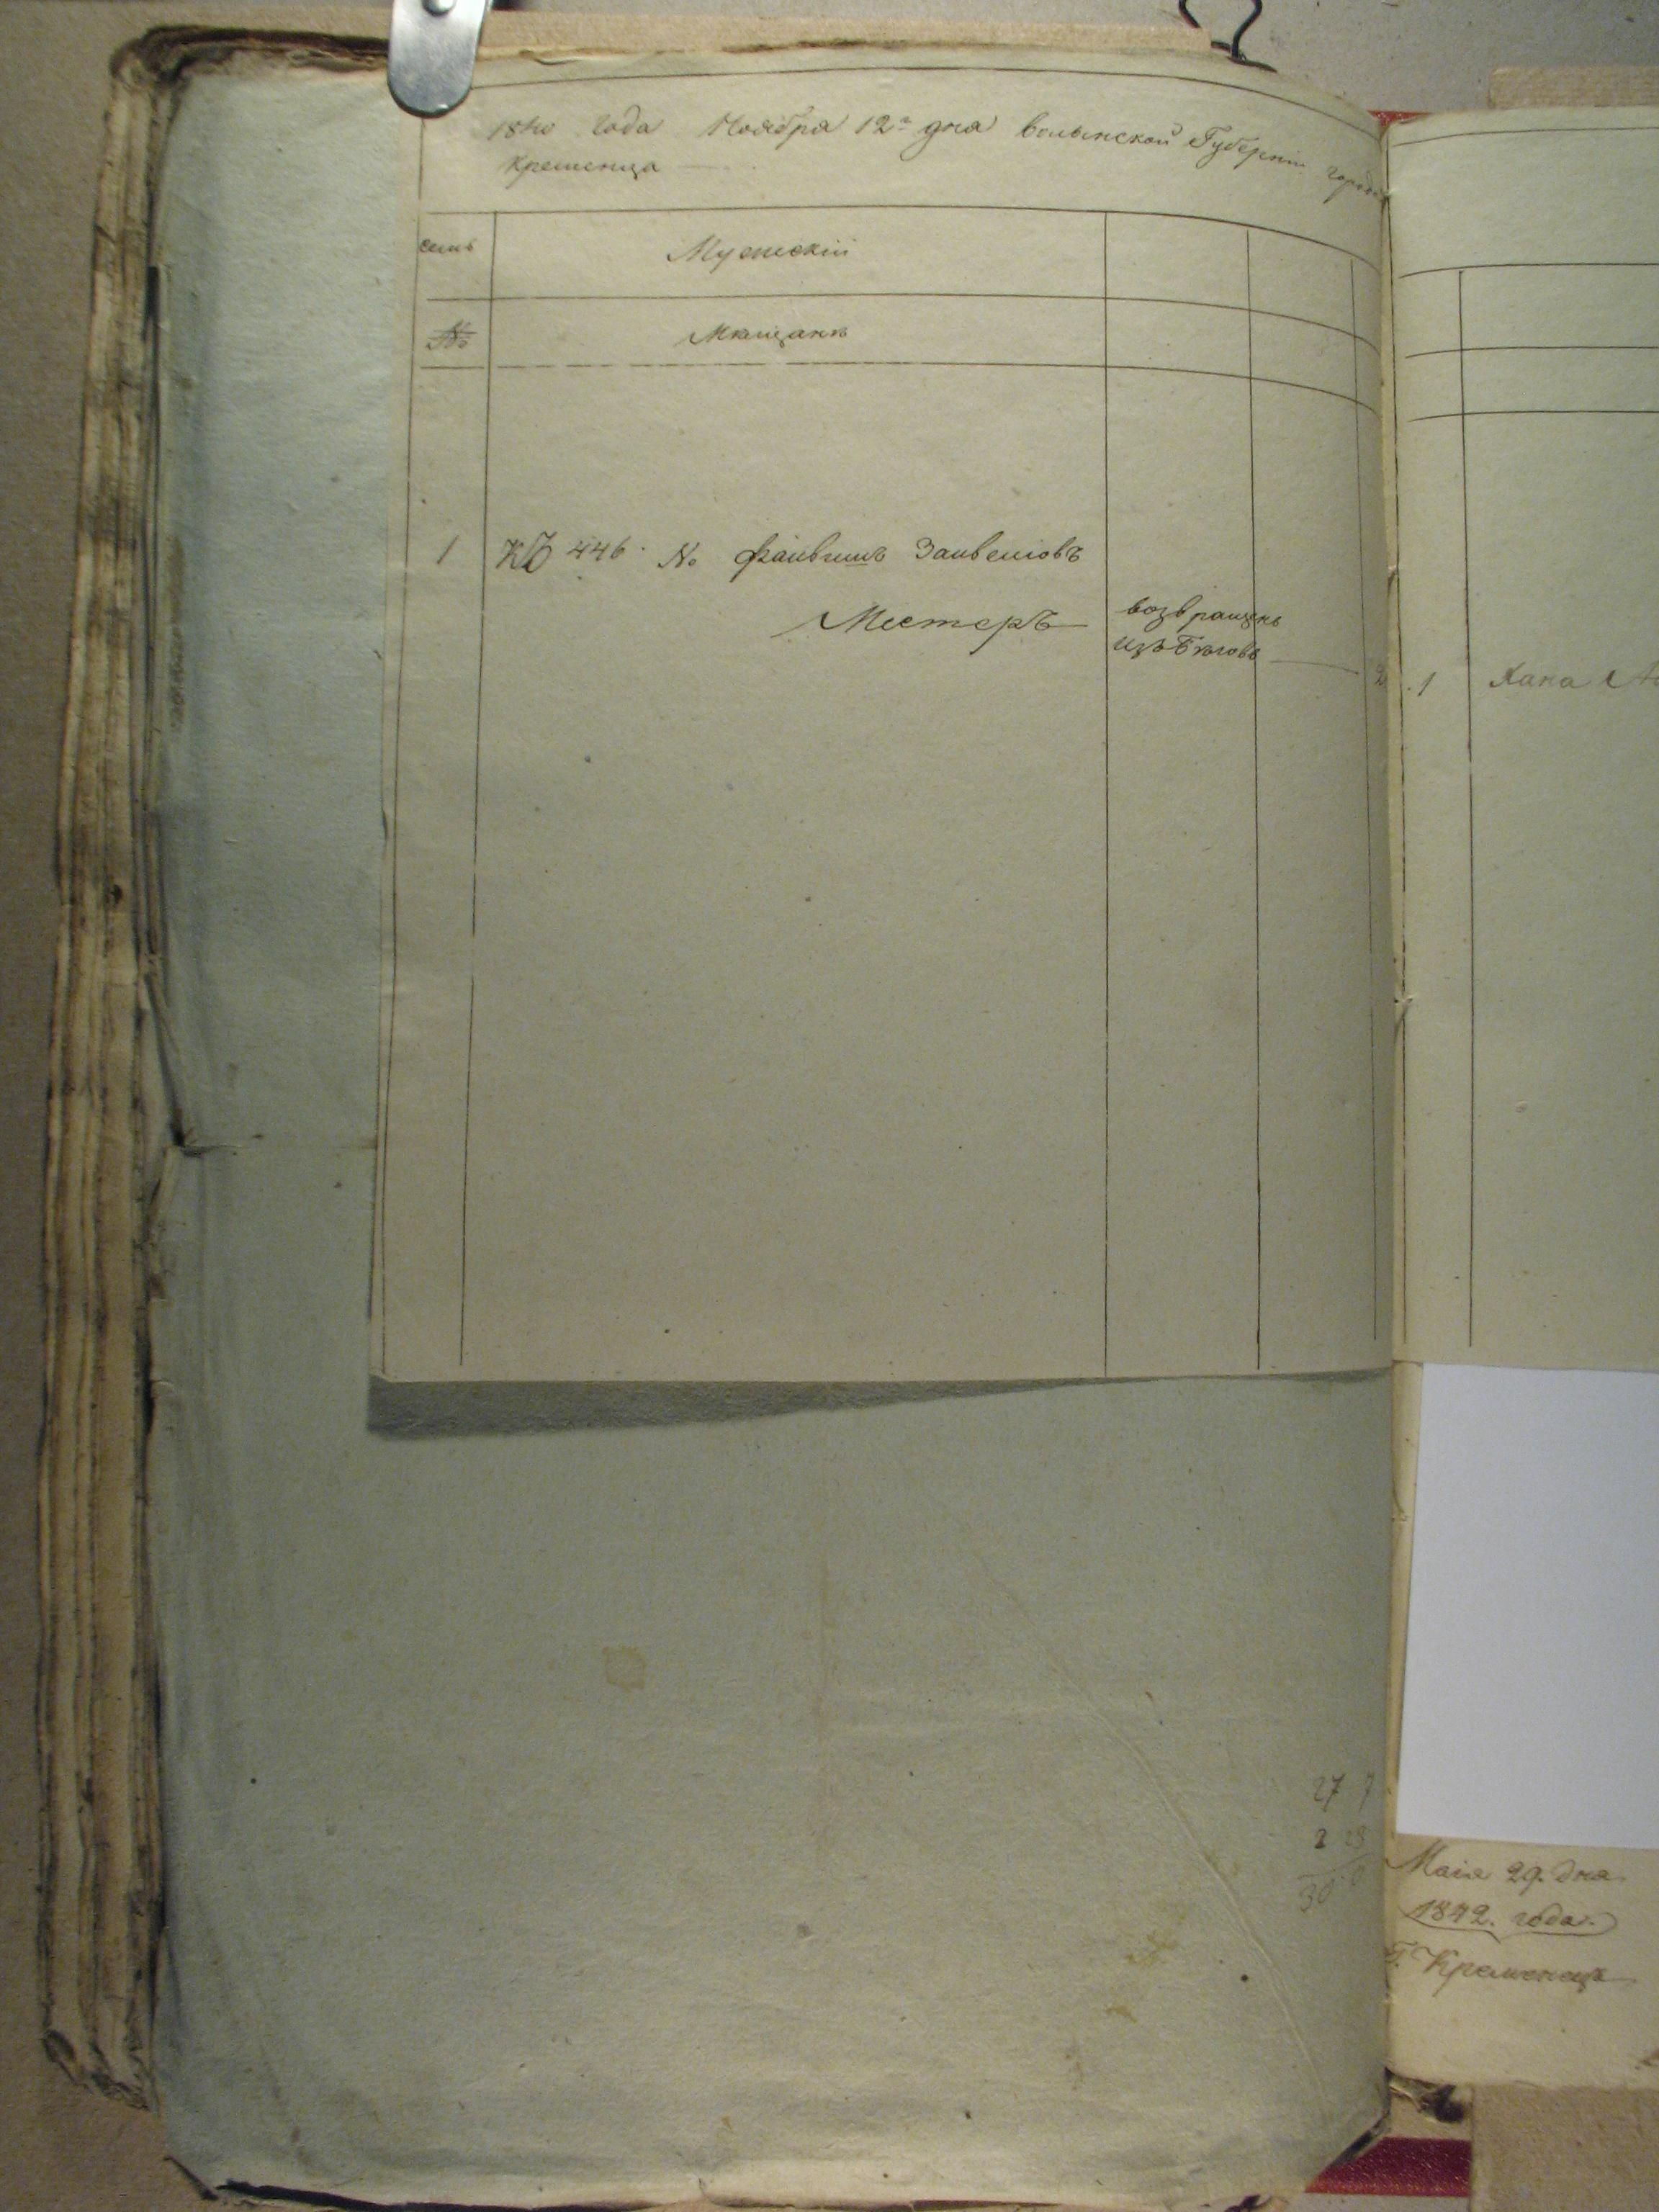 1840 года Ноября 12го дня Волынской Губернии города
Кременца
семь
Мужескiй
№
Мѣщанъ
1 КЪ 446 № Файвишъ Занвелiовъ
Местеръ
возвращенъ
изъ Бѣговъ
1 Хана
27 7
2 28
30
Маiя 29. дня
1842. года.
Г. Кременецъ